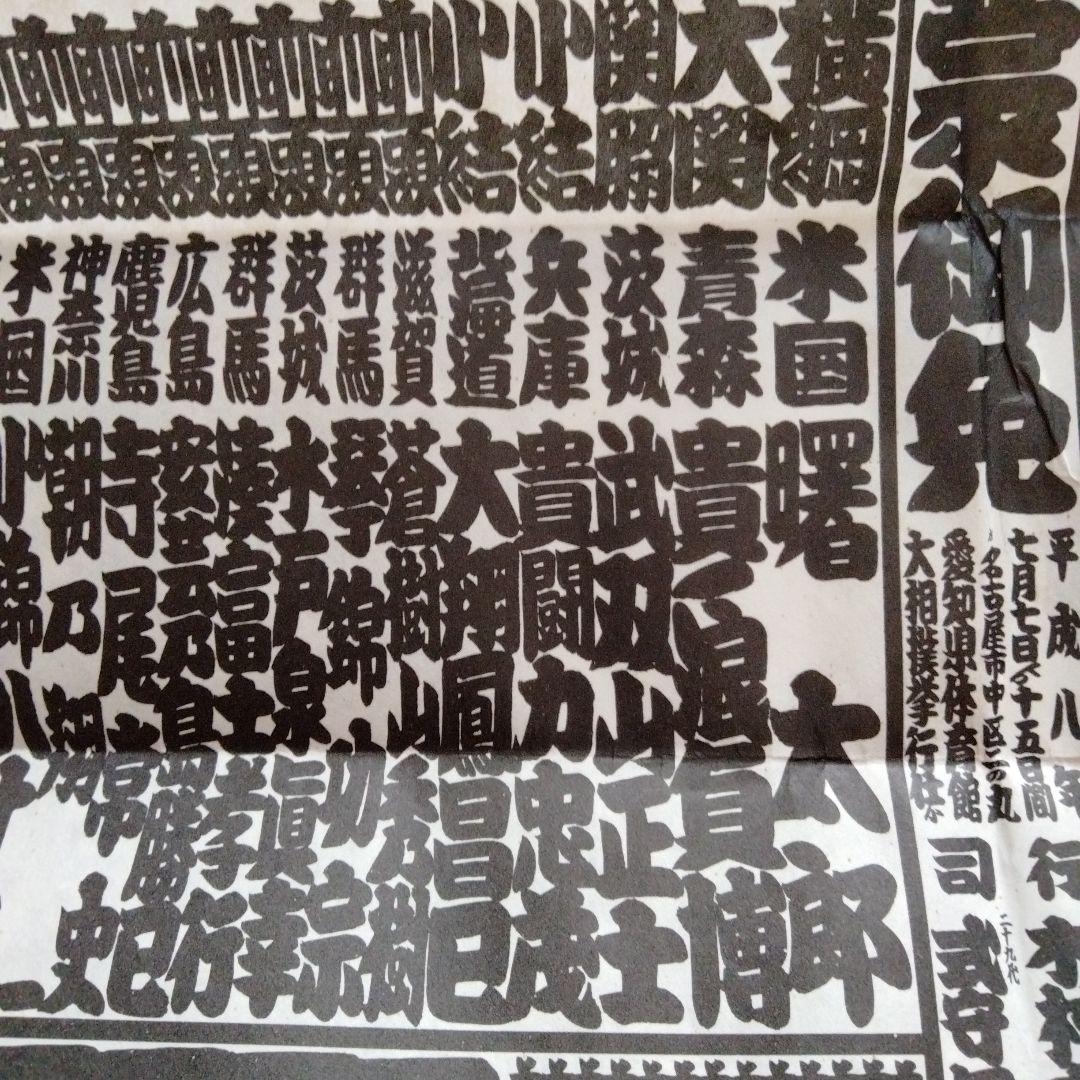 蒙御免
平成八年
七月七日ヨリ十五日間
名古屋市中区二の丸
愛知県体育館
大相撲挙行仕候
行司
二十九代
木村
式守
横綱 米国 曙 太郎
大関 青森 貴ノ浪貞博
関脇 茨城 武双山正士
小結 兵庫 貴闘力忠茂
小結 北海道 大翔鳳昌巳
前頭 滋賀 蒼樹山秀樹
前頭 群馬 琴錦功宗
前頭 茨城 水戸泉眞幸
前頭 群馬 湊富士孝行
前頭 広島 安芸乃島勝巳
前頭 鹿児島 寺尾常史
前頭 神奈川 朝乃翔
前頭 米国 小錦八十